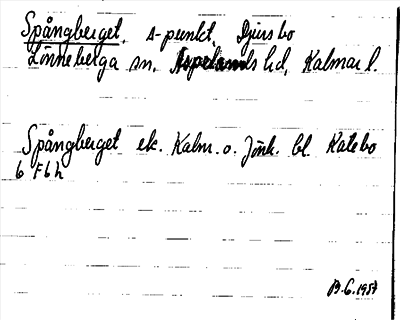 Spångberget, A-punkt, Djursbo
Lönneberga sn, Aspelands hd, Kalmar l.
Spångberget ek. Kalm. o. Jönk. bl. Katebo
6 F 6 h
B.G. 1957